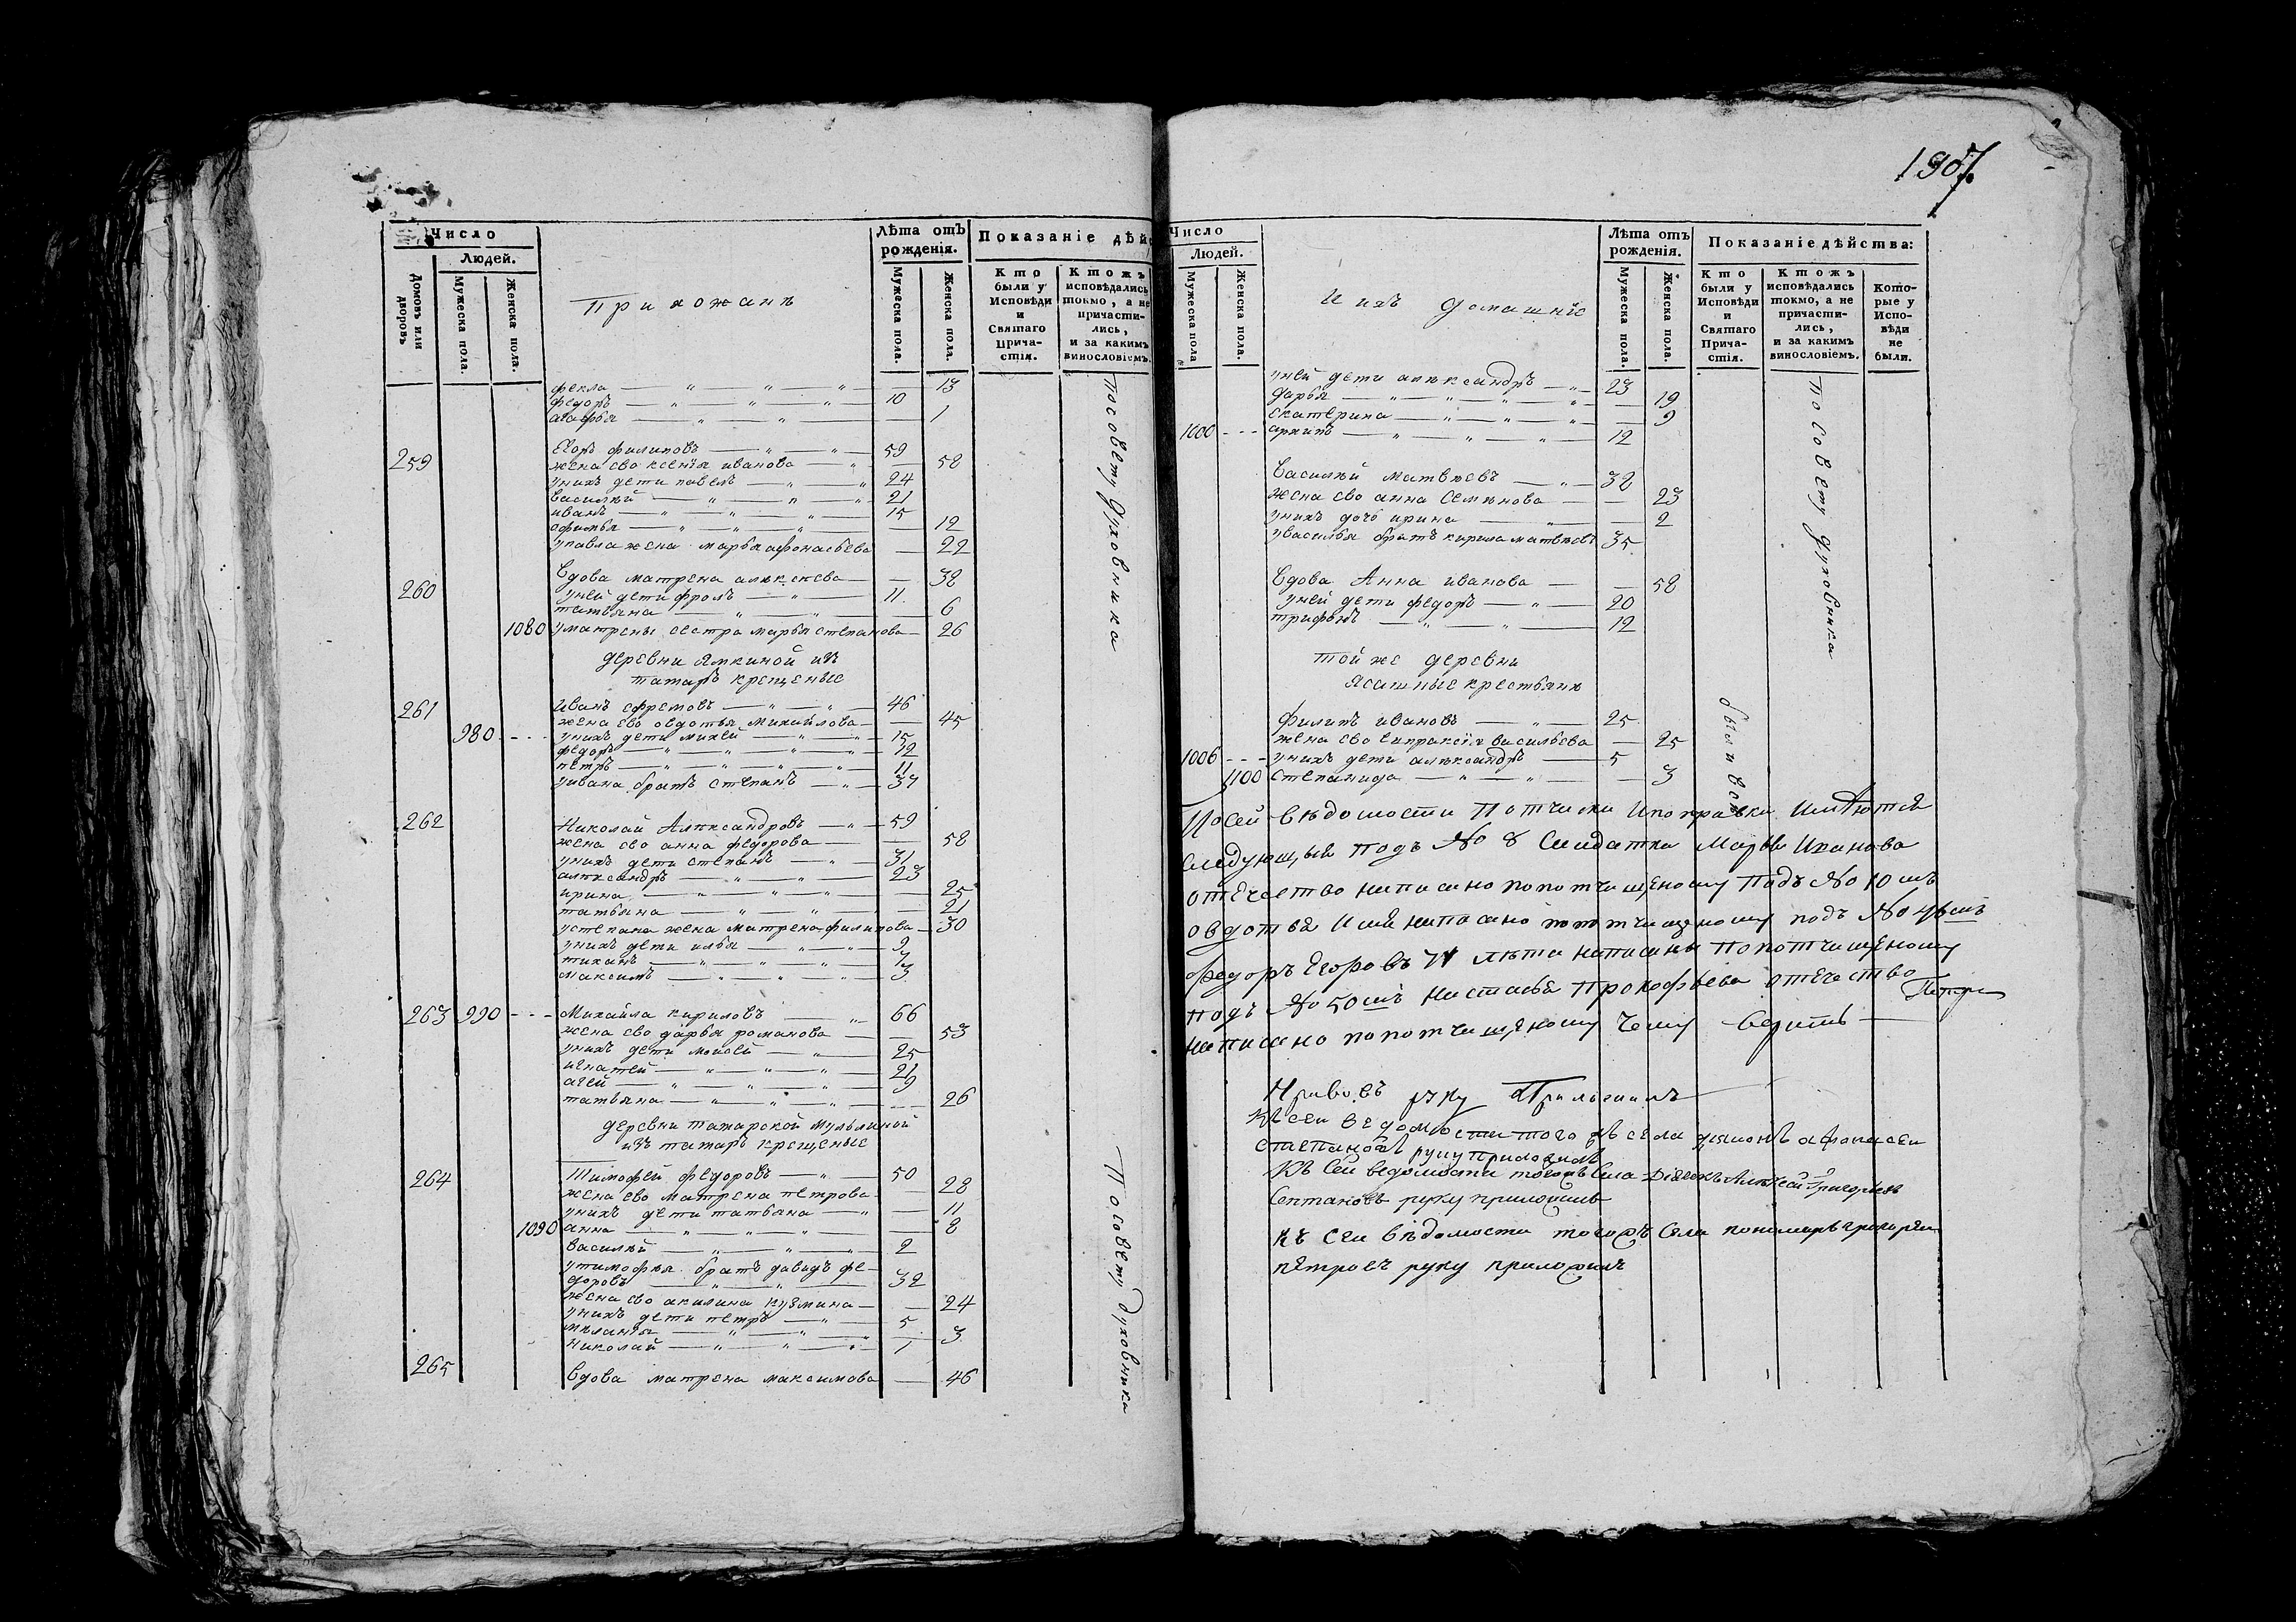 1907.
Число
Людей.
Домовъ или дворовъ
Мужеска пола.
Женска пола.
Прихожанъ
Лѣта отъ рожденія.
Мужеска пола.
Женска пола.
Показаніе дѣй
Кто были у Исповѣди и Святаго Прича-стія.
Ктожъ исповѣдались токмо, а не причасти-лись, и за какимъ винословіемъ.
фекла — " — " — " — 13
федоръ — " — " — " — 10
агафья — " — " — 1
259 Егоръ филиповъ — " — " — 59
жена ево ксенія иванова — " — 58
унихъ дети павелъ — " — " 24
василѣй — " — " — " — 21
иванъ — " — " — " — 15
офимья — " — " — " — 12
упавла жена марья афонасьева — 22
260 Вдова матрена алексеева — 38
уней дети фролъ — " — 11
татьяна — " — " — 6
1080 уматрены сестра марья степанова — 26
деревни Ямкиной изъ
татаръ крещеные
261 Иванъ ефремовъ — " — " — 46
жена ево овдотья михайлова — 45
980 - - - унихъ дети михей — " — " — 15
федоръ — " — " — " — " — 12
петръ — " — " — " — " — 11
уивана братъ степанъ — " — 37
262 Николай Александровъ — " — 59
жена ево анна федорова — 58
унихъ дети степанъ — " — 31
александръ — " — " — 23
ирина — " — " — " — 25
татьяна — " — " — 21
устепана жена матрена филипова — 30
унихъ дети илья — " — " — 9
тиханъ — " — " — " — 7
максимъ — " — " — " — 3
263 990 - - - Михайла кириловъ — " — 66
жена ево дарья романова — 53
унихъ дети моисей — " — 25
игнатей — " — " — " — 21
агей — " — " — " — 9
татьяна — " — " — " — 26
деревни татарской мульминой
изъ татаръ крещеные
264 Тимофей федоровъ — " — 50
жена ево матрена петрова — 28
унихъ дети татьяна — " — 11
1090 анна — " — " — " — 8
василѣй — " — " — " — 2
утимофея братъ давидъ фе-
доровъ — " — " — 32
жена ево акилина кузмина — 24
унихъ дети петръ — " — 5
меланья — " — " — " — 3
николай — " — " — " — 1
265 Вдова матрена максимова — 46
По совету духовника
По совету духовника
Число
Людей.
Мужеска пола
Женска пола.
И ихъ домашніе
Лѣта отъ рожденія.
Мужеска пола.
Женска пола.
Показаніе дѣйства:
Кто были у Исповѣди и Святаго Прича-стія.
Ктожъ исповѣдались токмо, а не причасти-лись, и за какимъ винословіемъ.
Кото-рые у Испо-вѣди не были.
уней дети александръ — " — 23
дарья — " — " — " — " — 19
екатерина — " — " — " — 9
1000 - - - архипъ — " — " — " — 12
Василѣй матвѣевъ — " — 32
жена ево анна семенова — 23
унихъ дочь ирина — " — 2
увасилья братъ кирила матвѣевъ 35
Вдова Анна иванова — 58
уней дети федоръ — " — 20
трифонъ — " — " — 12
той же деревни
Ясашные крестьяня
филипъ ивановъ — " — 25
жена ево евпраксія васильева — 25
1006 - - - унихъ дети александръ — 5
1100 степанида — " — " — 3
По совету духовника
были все
По сей вѣдомости Потчиски Ипоправки Имѣются
следующыя подъ № 8 Салдатка Марья Иванова
отечество написано попотчищеному Подъ № 10 мъ
овдотья Имя написано попотчищеному подъ №
федоръ Егоровъ лѣта написаны Попотчищеному
подъ № 50 мъ Настасья Прокофьева отечество
написано попотчищеному Чему Верить
руку Приложилъ
Къ сей ведомости того жъ села дьяконъ афанасей
степановъ руку приложилъ
Къ Сей ведомости тогожъ Села Алексей Григорьевъ
руку приложилъ
къ сей вѣдомости тогожъ Села пономарь григорей
петровъ руку приложилъ